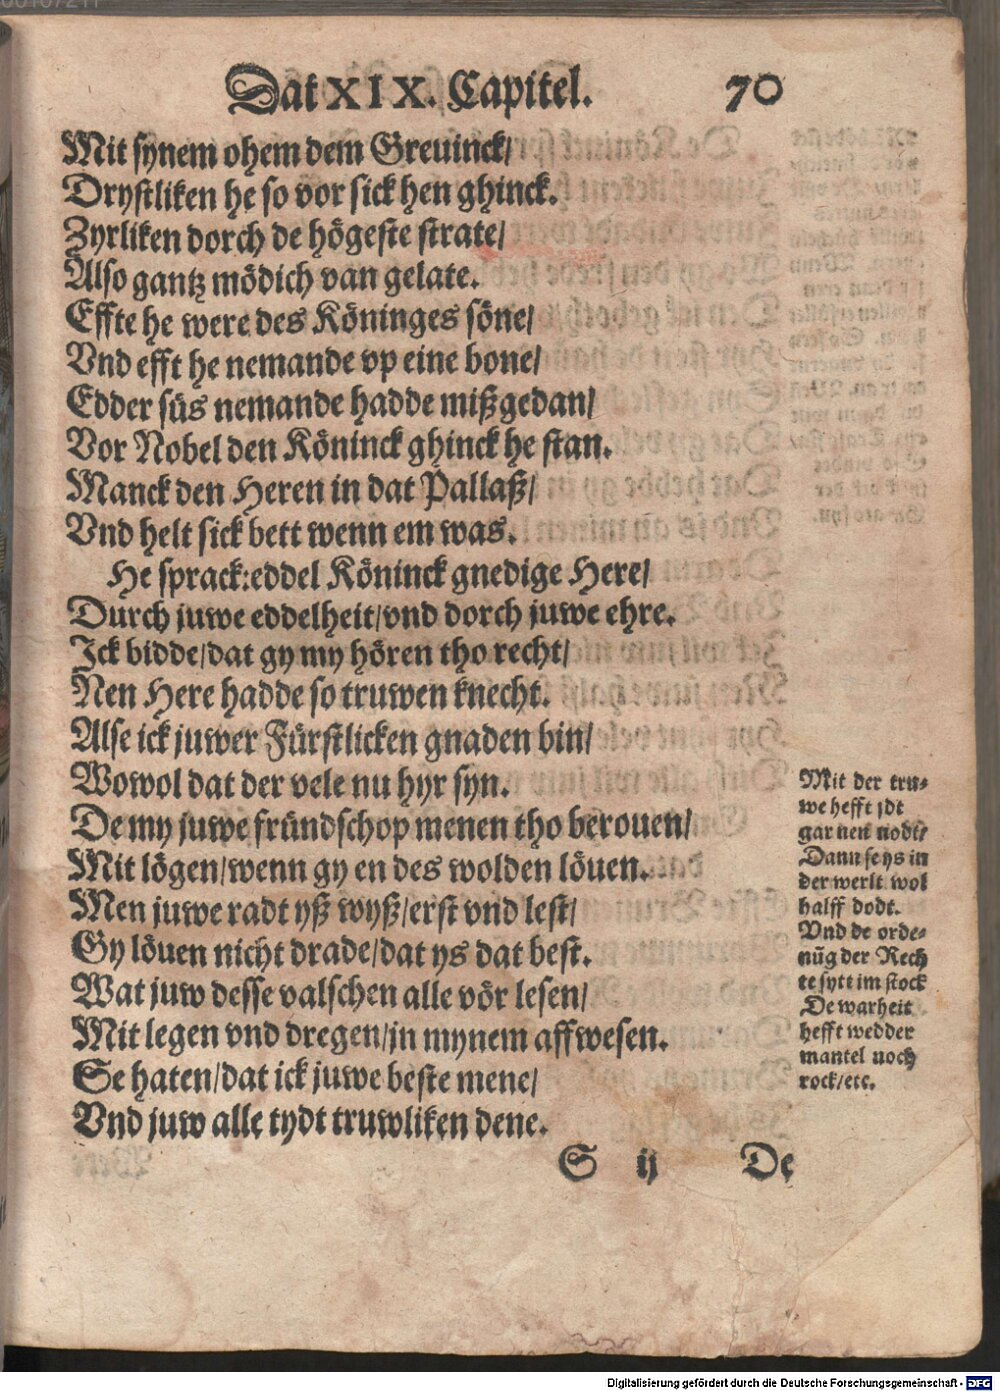 Dat XIX. Capitel. 70
Mit synem ohem dem Greuinck/
Drystliken he so vor sick hen ghinck.
Zyrliken dorch de högeste strate/
Also gantz mödich van gelate.
Effte he were des Köninges söne/
Vnd efft he nemande vp eine bone/
Edder süs nemande hadde mißgedan/
Vor Nobel den Köninck ghinck he stan.
Manck den Heren in dat Pallaß/
Vnd helt sick bett wenn em was.
He sprack: eddel Köninck gnedige Here/
Durch juwe eddelheit/vnd dorch juwe ehre.
Ick bidde/dat gy my hören tho recht/
Nen Here hadde so truwen knecht.
Alse ick juwer Fürstlicken gnaden bin/
Wowol dat der vele nu hyr syn.
De my juwe fründschop menen tho berouen/
Mit lögen/wenn gy en des wolden löuen.
Men juwe radt yß wyß/erst vnd lest/
Gy löuen nicht drade/dat ys dat best.
Wat juw desse valschen alle vör lesen/
Mit legen vnd dregen/in mynem affwesen.
Se haten/dat ick juwe beste mene/
Vnd juw alle tydt truwliken dene.
S ij De
Mit der tru-
we hefft jdt
gar nen nodt/
Dann se ys in
der werlt wol
halff dodt.
Vnd de orde-
nūg der Rech
te sytt im stock
De warheit
hefft wedder
mantel noch
rock/etc.
Digitalisierung gefördert durch die Deutsche Forschungsgemeinschaft - DFG